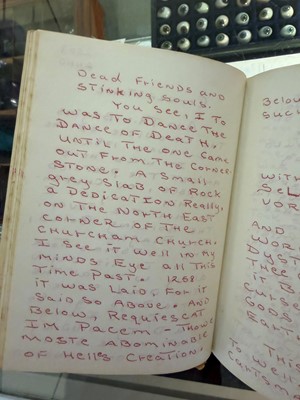 Dead Friends and
Stinking Souls.
You see, I To
was To Dance The
Dance of Death,
Until The one Came
out From The Corner
Stone. A Small
grey Slab of Rock
a Dedication Really,
on The North East
Corner of The
Churcham Church.
I See it Well in My
Minds Eye all This
Time Past. 1268.
it was Laid, For it
Said So Above. And
Below, Requiescat
IM Pacem - Thowe
Moste Abominable
of Helles Creation.
Below
Suc
With
Sel
Vor
And
Wor
Dust
Thee
it B
Curse
Gods
Eart
This
To Well